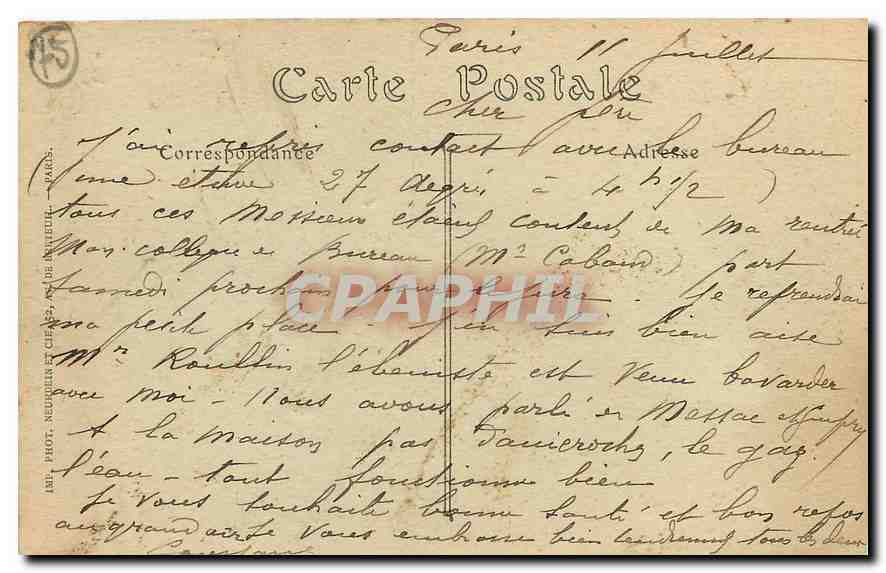 75
Paris 11 Juillet
Carte Postale
cher père
J'ai repris contact avec le bureau
Correspondance Adresse
(une étuve 27 degrés à 4 h 1/2)
tous ces Messieurs étaient contents de ma rentrée
Mon collègue de Bureau (Mr Caband) part
Samedi prochain pour le Jura - Je reprendrai
ma petite place - J'en suis bien aise
Mr Roullin l'ébéniste est venu bavarder
avec moi - Nous avons parlé de Messac
A la maison pas d'anicroches, le gaz
l'eau - tout fonctionne bien
Je vous souhaite bonne santé et bon repos
au grand air Je vous embrasse bien tendrement tous les deux
IMP. PHOT. NEURDEIN ET CIE, 52, AV. DE BRETEUIL. — PARIS.
CPAPHIL